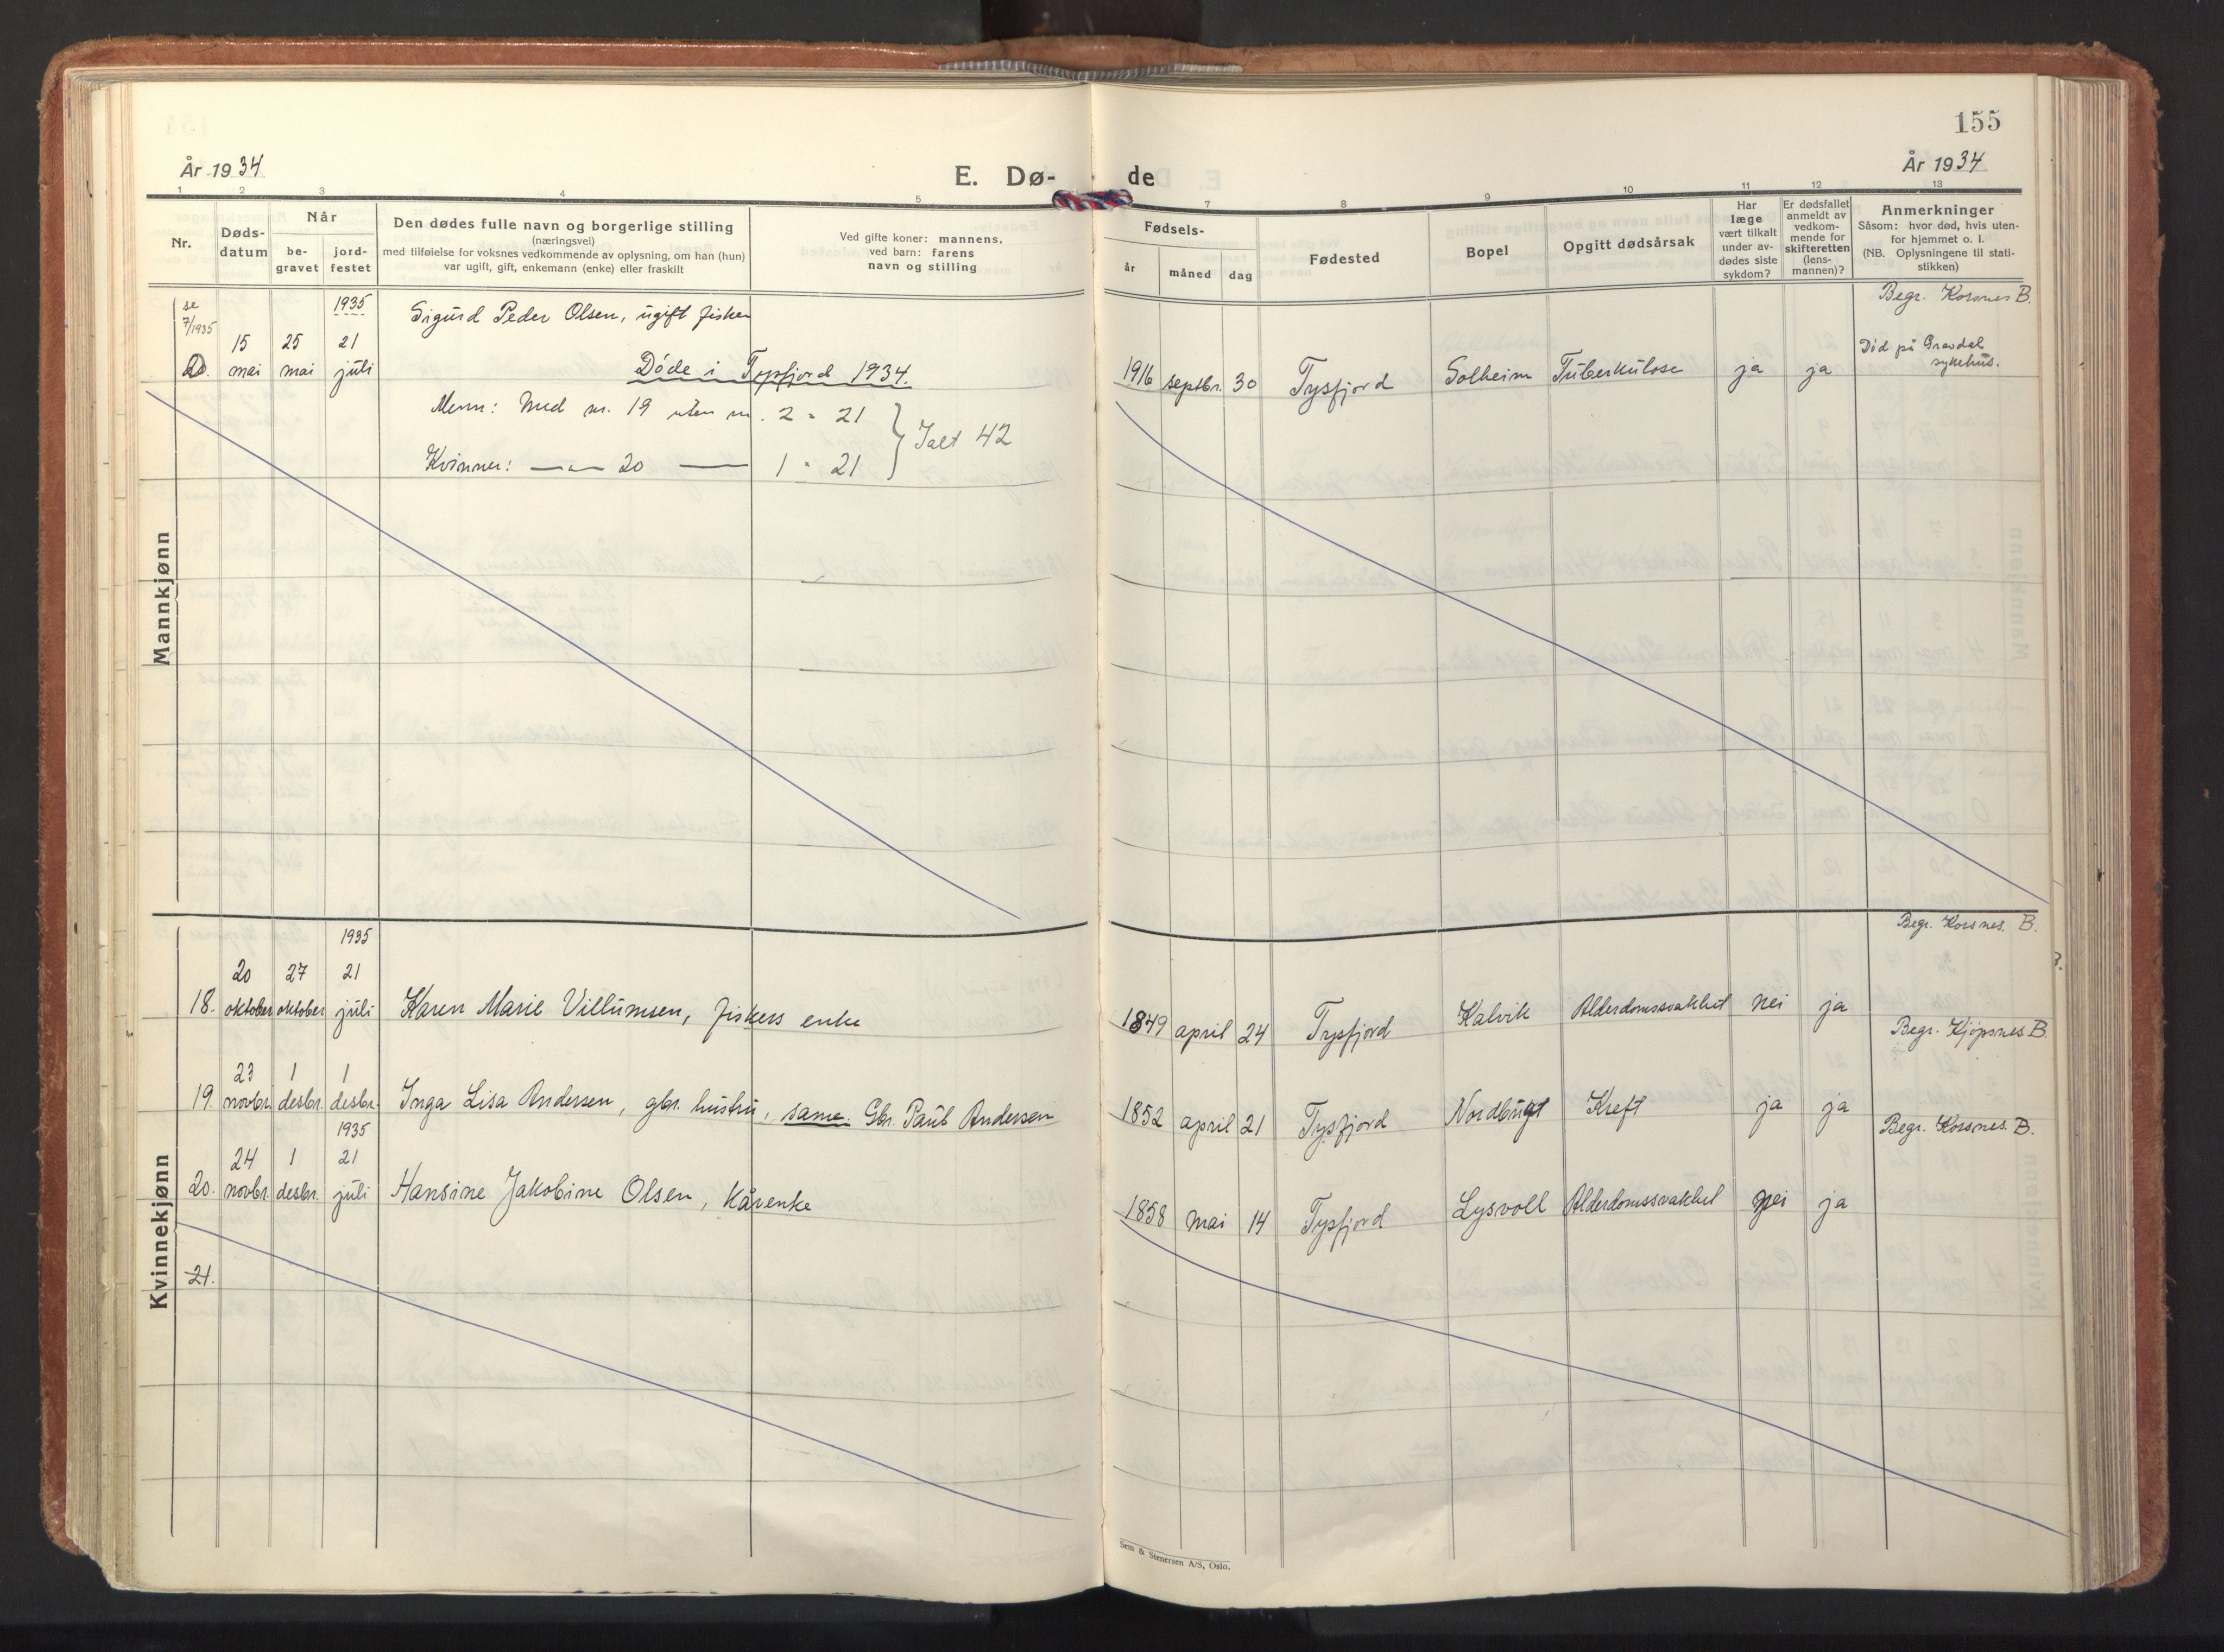 155
År 1934
E. Dø-
de
År 1934
1 2 3 4 5 7 8 9 10 11 12 13
Nr.
Døds-
datum
Når
be-
gravet
jord-
festet
Den dødes fulle navn og borgerlige stilling
(næringsvei)
med tilføielse for voksnes vedkommende av oplysning, om han (hun)
var ugift, gift, enkemann (enke) eller fraskilt
Ved gifte koner: mannens,
ved barn: farens
navn og stilling
Fødsels-
år
måned
dag
Fødested
Bopel
Opgitt dødsårsak
Har
læge
vært tilkalt
under av-
dødes siste
sykdom?
Er dødsfallet
anmeldt av
vedkom-
mende for
skifteretten
(lens-
mannen)?
Anmerkninger
Såsom: hvor død, hvis uten-
for hjemmet o. l.
(NB. Oplysningene til stati-
stikken)
Mannkjønn
se
7/1935
1935
Sigurd Peder Olsen, ugift fisker
Begr. Korsnes B.
15 25 21
20. mai mai juli
1916 septbr. 30 Tysfjord Solheim Tuberkulose ja ja
Død på Gravdal
sykehus.
Døde i Tysfjord 1934.
Menn: Med nr. 19 uten nr. 2 = 21
Kvinner: —"— 20 —— 1 = 21
Ialt 42
Kvinnekjønn
1935
Begr. Korsnes. B.
20 27 21
18. oktober oktober juli Karen Marie Villumsen, fiskers enke
1849 april 24 Tysfjord Kalvik Alderdomssvakhet nei ja
Begr. Kjøpsnes B.
23 1 1
19. novbr. desbr. desbr. Inga Lisa Andersen, gbr. hustru, same. Gbr. Paul Andersen
1852 april 21 Tysfjord Nordbugt Kreft ja ja
1935
Begr. Korsnes. B.
24 1 21
20. novbr. desbr. juli Hansine Jakobine Olsen, kårenke
1858 mai 14 Tysfjord Lysvoll Alderdomssvakhet nei ja
21.
Sem & Stenersen A/S, Oslo.